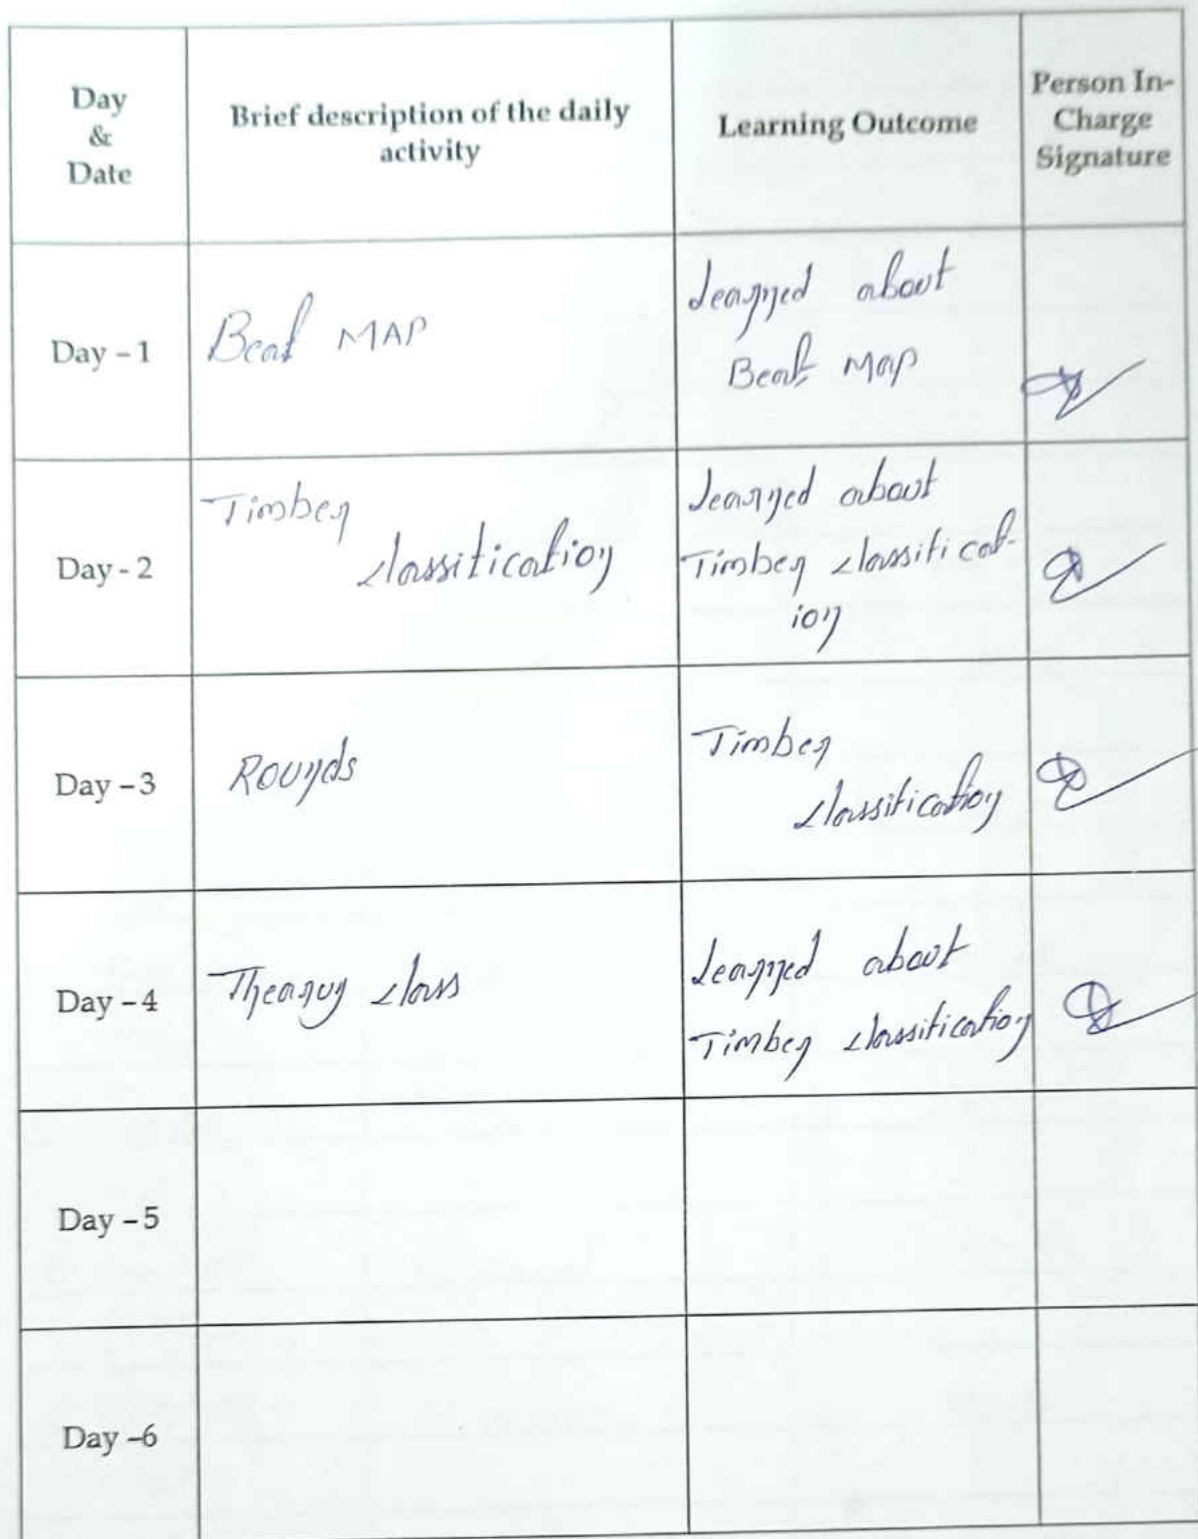 Day
&
Date
Brief description of the daily
activity
Learning Outcome
Person In-
Charge
Signature
Day – 1
Beat MAP
Learned about
Beat Map
Day - 2
Timber
classification
Learned about
Timber classificat-
ion
Day – 3
Rounds
Timber
classification
Day – 4
Theary class
Learned about
Timber classification
Day – 5
Day –6